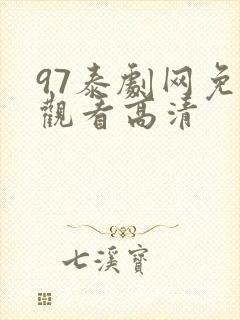 97泰劇网免
觀看高清
七溪寶